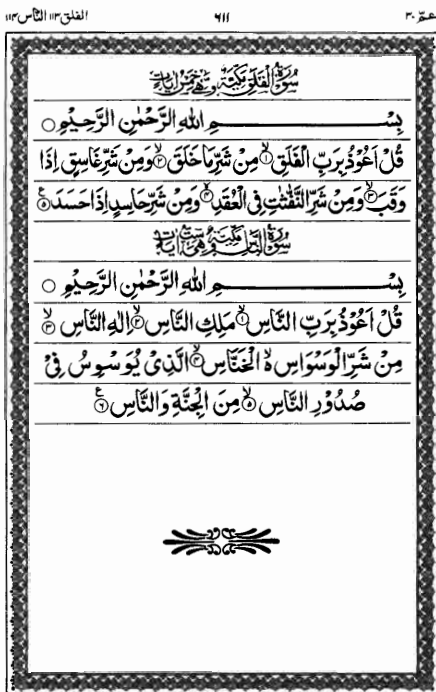 عمّ ٣٠ ٦١١ الفلق ١١٣ النّاس ١١٤
سُوْرَةُ الْفَلَقِ مَكِّيَّةٌ وَّهِيَ خَمْسُ اٰيَاتٍ
بِسْمِ اللّٰهِ الرَّحْمٰنِ الرَّحِيْمِ ○
قُلْ اَعُوْذُ بِرَبِّ الْفَلَقِ ۙ﴿۱﴾ مِنْ شَرِّ مَا خَلَقَ ۙ﴿۲﴾ وَمِنْ شَرِّ غَاسِقٍ اِذَا
وَقَبَ ۙ﴿۳﴾ وَمِنْ شَرِّ النَّفّٰثٰتِ فِی الْعُقَدِ ۙ﴿۴﴾ وَمِنْ شَرِّ حَاسِدٍ اِذَا حَسَدَ ﴿۵﴾ع
سُوْرَةُ النَّاسِ مَكِّيَّةٌ وَّهِيَ سِتُّ اٰيَاتٍ
بِسْمِ اللّٰهِ الرَّحْمٰنِ الرَّحِيْمِ ○
قُلْ اَعُوْذُ بِرَبِّ النَّاسِ ۙ﴿۱﴾ مَلِكِ النَّاسِ ۙ﴿۲﴾ اِلٰهِ النَّاسِ ۙ﴿۳﴾
مِنْ شَرِّ الْوَسْوَاسِ ۙ۬ الْخَنَّاسِ ۙ﴿۴﴾ الَّذِیْ يُوَسْوِسُ فِیْ
صُدُوْرِ النَّاسِ ۙ﴿۵﴾ مِنَ الْجِنَّةِ وَالنَّاسِ ﴿۶﴾ع